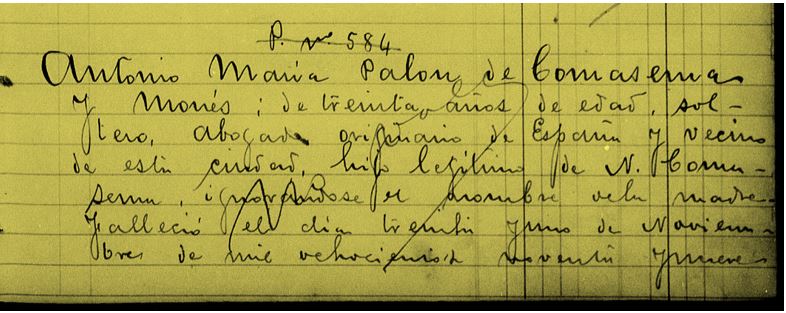 P. nº 584
Antonio Maria Palou de Comasema
y Monés; de treinta años de edad, sol-
tero, abogado originario de España y vecino
de esta ciudad, hijo legitimo de N. Coma-
sema, ignorandose el nombre dela madre
falleció el dia treinta y uno de Noviem-
bre de mil ochocientos noventa y nueve